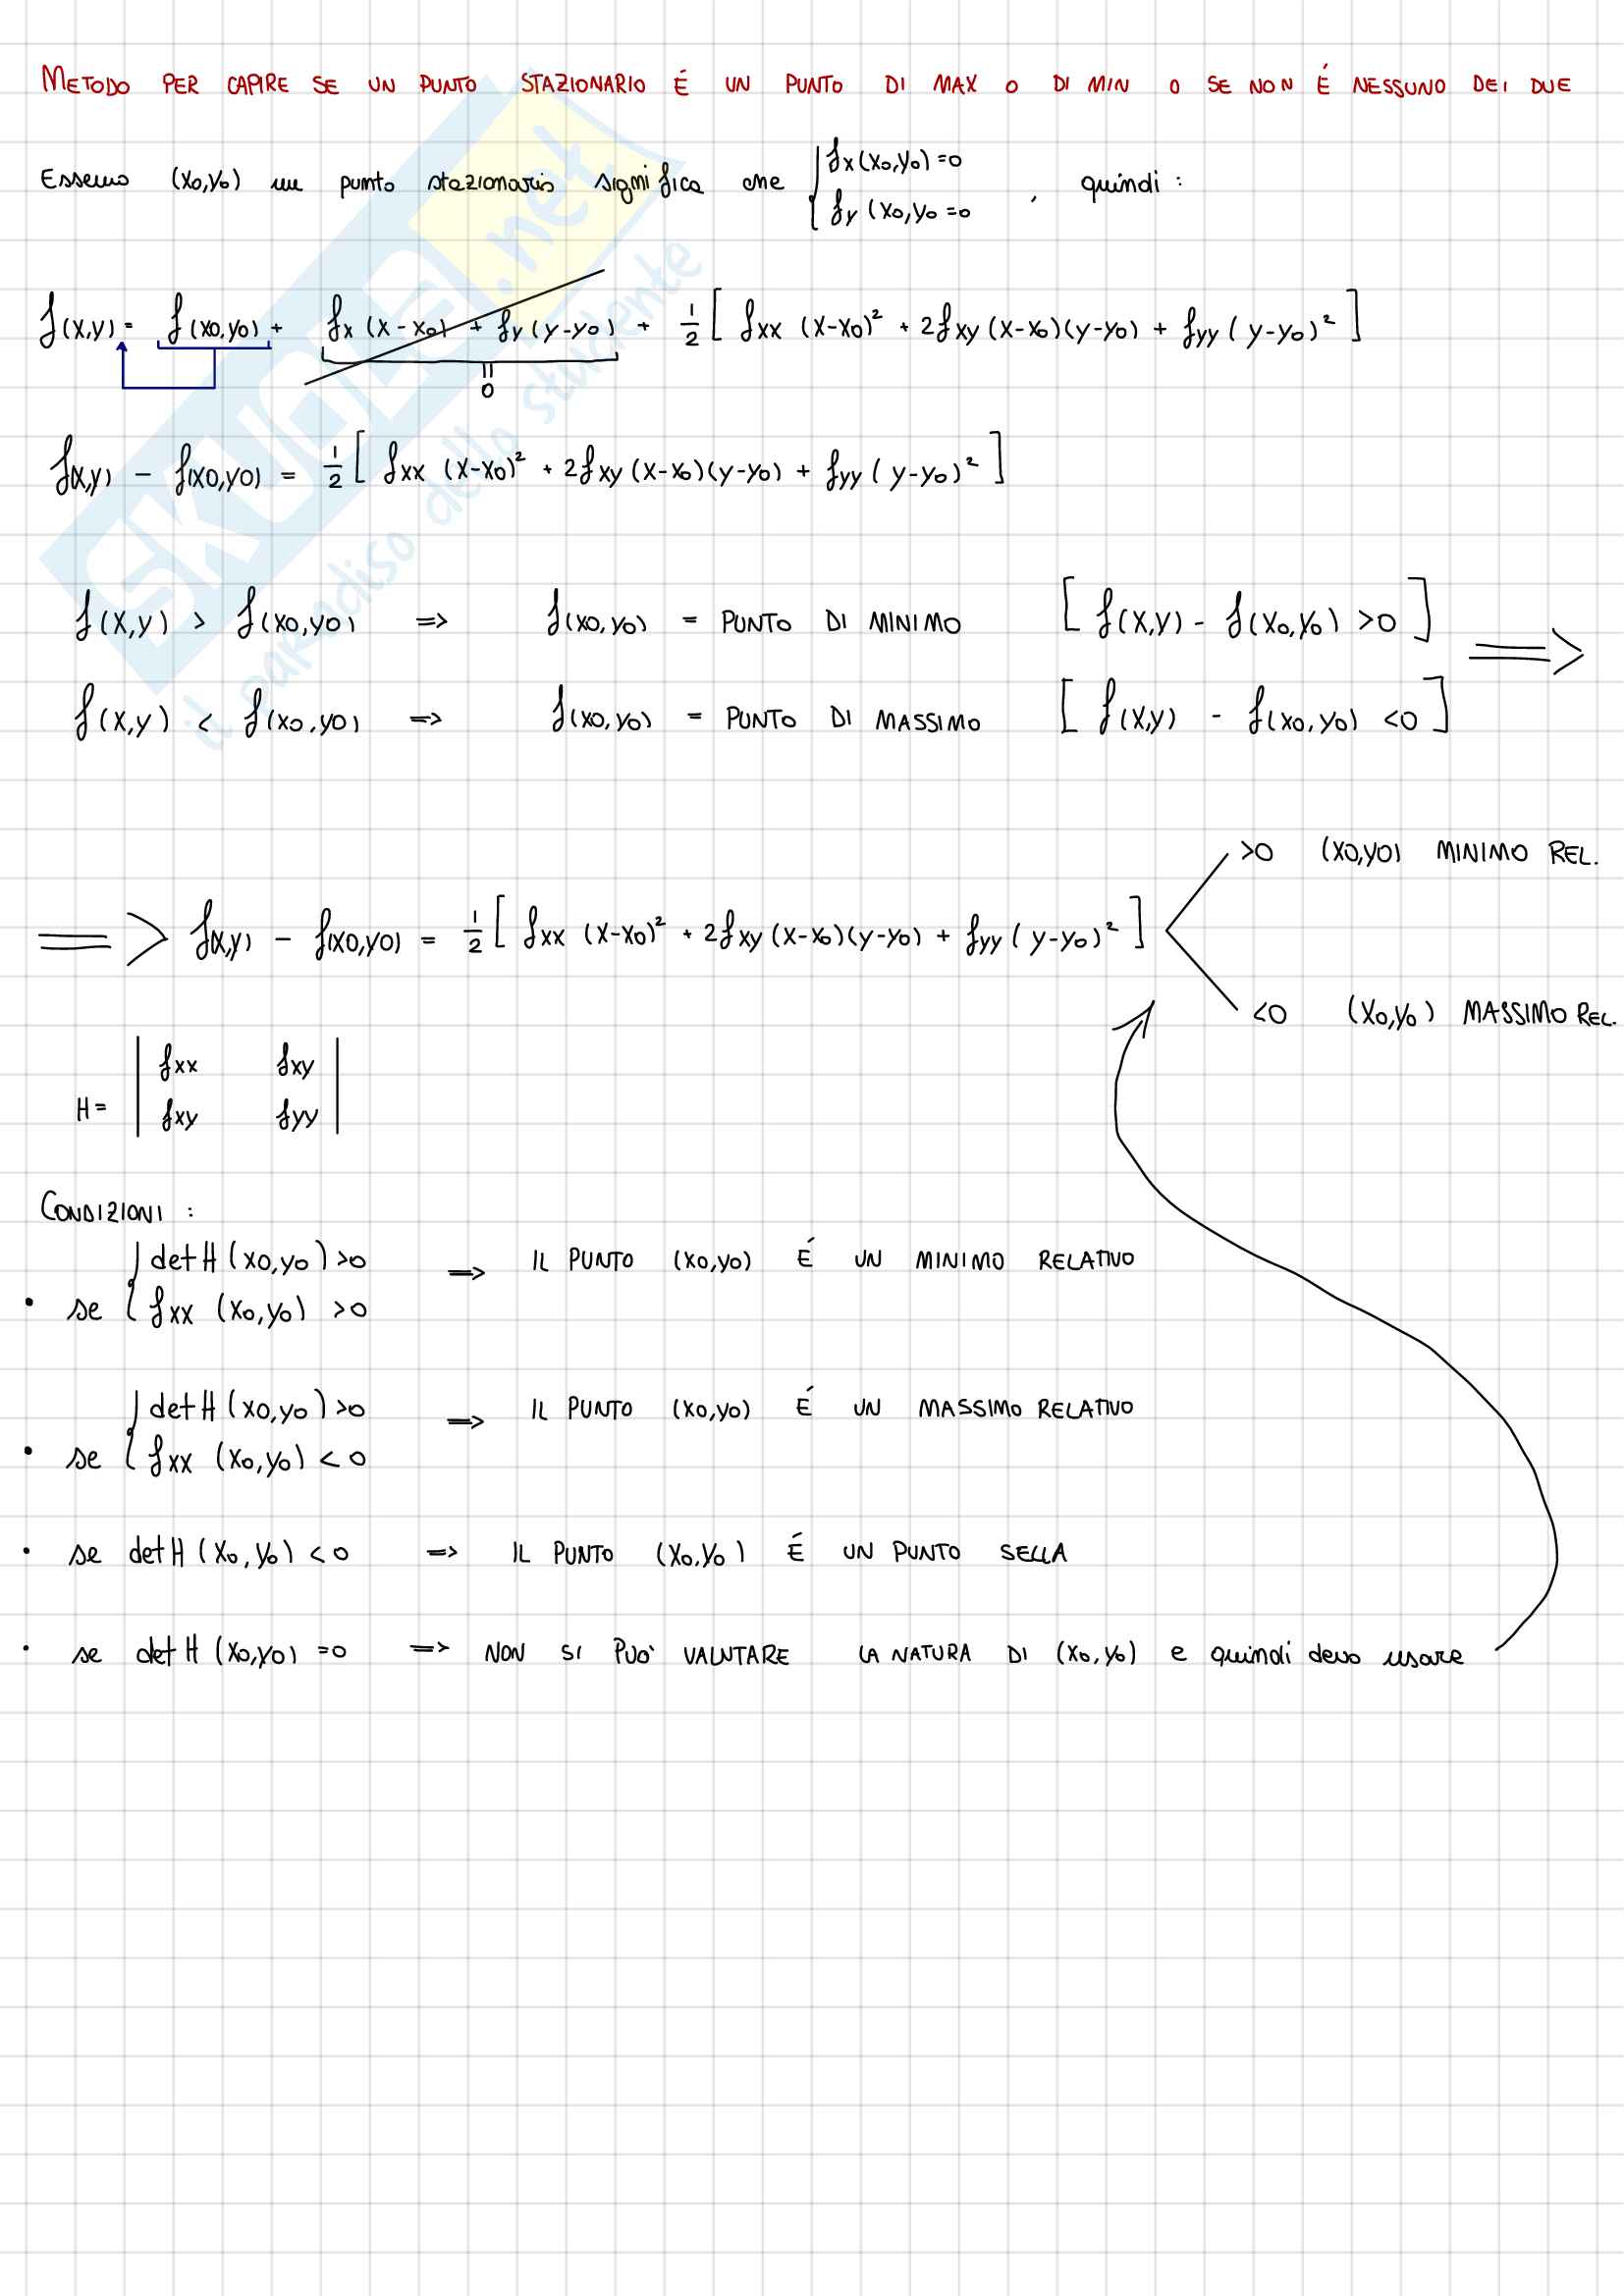 METODO PER CAPIRE SE UN PUNTO STAZIONARIO É UN PUNTO DI MAX O DI MIN O SE NON É NESSUNO DEI DUE
Essemo (x0,y0) un punto stazionario significa che { fx(x0,y0)=0
fy(x0,y0=0 , quindi:
f(x,y) = f(x0,y0) + fx(x-x0) + fy(y-y0) + 1/2 [ fxx (x-x0)² + 2fxy(x-x0)(y-y0) + fyy(y-y0)² ]
=
0
f(x,y) - f(x0,y0) = 1/2 [ fxx (x-x0)² + 2fxy(x-x0)(y-y0) + fyy(y-y0)² ]
f(x,y) > f(x0,y0) => f(x0,y0) = PUNTO DI MINIMO [ f(x,y) - f(x0,y0) >0 ] =>
f(x,y) < f(x0,y0) => f(x0,y0) = PUNTO DI MASSIMO [ f(x,y) - f(x0,y0) <0 ]
>0 (x0,y0) MINIMO REL.
=> f(x,y) - f(x0,y0) = 1/2 [ fxx (x-x0)² + 2fxy(x-x0)(y-y0) + fyy(y-y0)² ]
<0 (x0,y0) MASSIMO REL.
H = | fxx fxy |
| fxy fyy |
CONDIZIONI :
• se { det H (x0,y0) >0 => IL PUNTO (x0,y0) É UN MINIMO RELATIVO
fxx (x0,y0) >0
• se { det H (x0,y0) >0 => IL PUNTO (x0,y0) É UN MASSIMO RELATIVO
fxx (x0,y0) <0
• se det H (x0,y0) <0 => IL PUNTO (x0,y0) É UN PUNTO SELLA
• se det H (x0,y0) =0 => NON SI PUO' VALUTARE LA NATURA DI (x0,y0) e quindi devo usare
SKUOLA.net
il paradiso dello studente